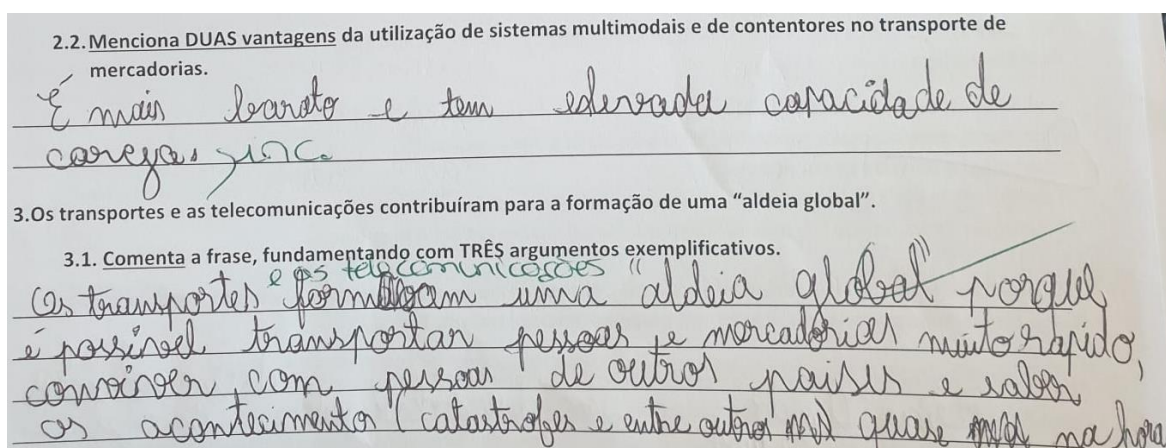 2.2. Menciona DUAS vantagens da utilização de sistemas multimodais e de contentores no transporte de
mercadorias.
É mais barato e tem elevada capacidade de
carega. inc.
3.Os transportes e as telecomunicações contribuíram para a formação de uma “aldeia global”.
3.1. Comenta a frase, fundamentando com TRÊS argumentos exemplificativos.
e as telecomunicações
Os transportes uma "aldeia global" porque
é possivel transportar pessoas e mercadorias muito rápido,
conviver com pessoas de outros paises e saber
os acontecimentos (catastrofes e entre outros quase na hora